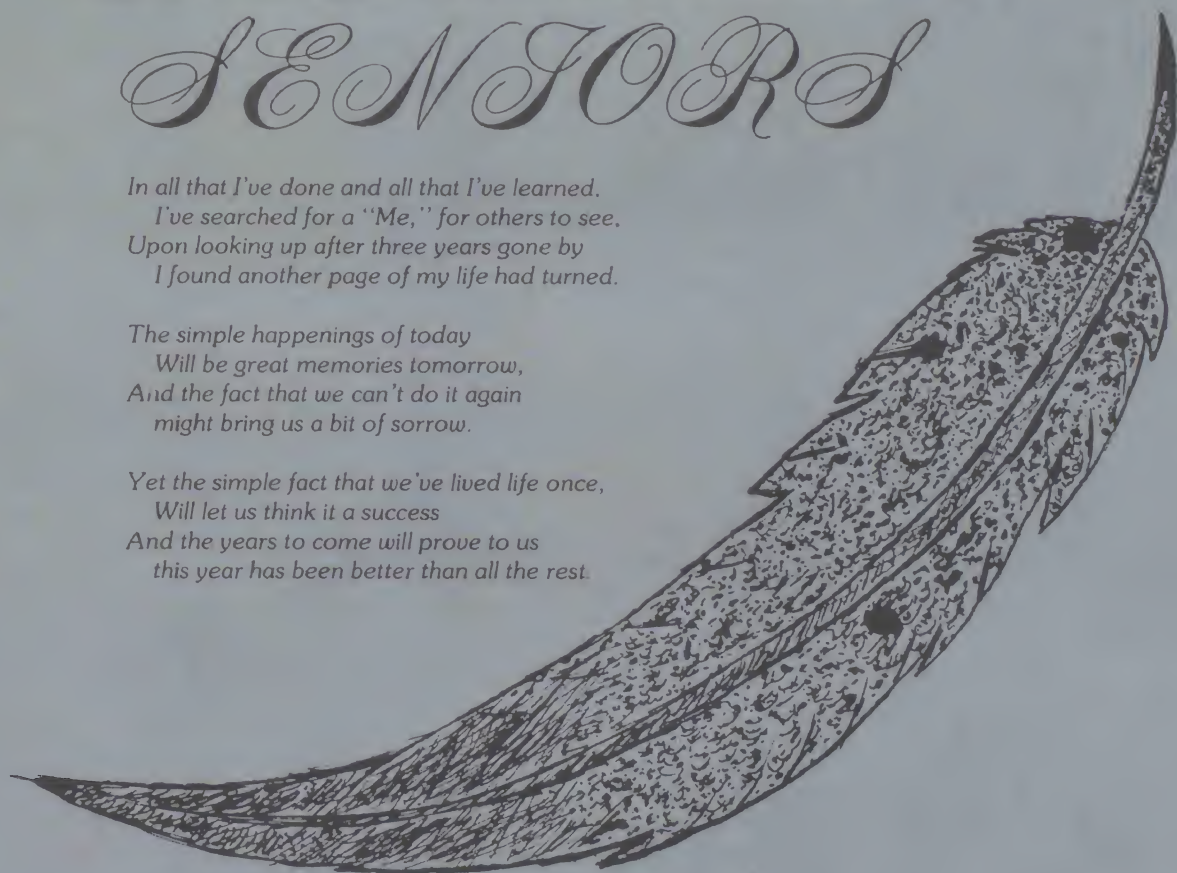 SENIORS
In all that I've done and all that I've learned.
I've searched for a "Me," for others to see.
Upon looking up after three years gone by
I found another page of my life had turned.
The simple happenings of today
Will be great memories tomorrow,
And the fact that we can't do it again
might bring us a bit of sorrow.
Yet the simple fact that we've lived life once,
Will let us think it a success
And the years to come will prove to us
this year has been better than all the rest.